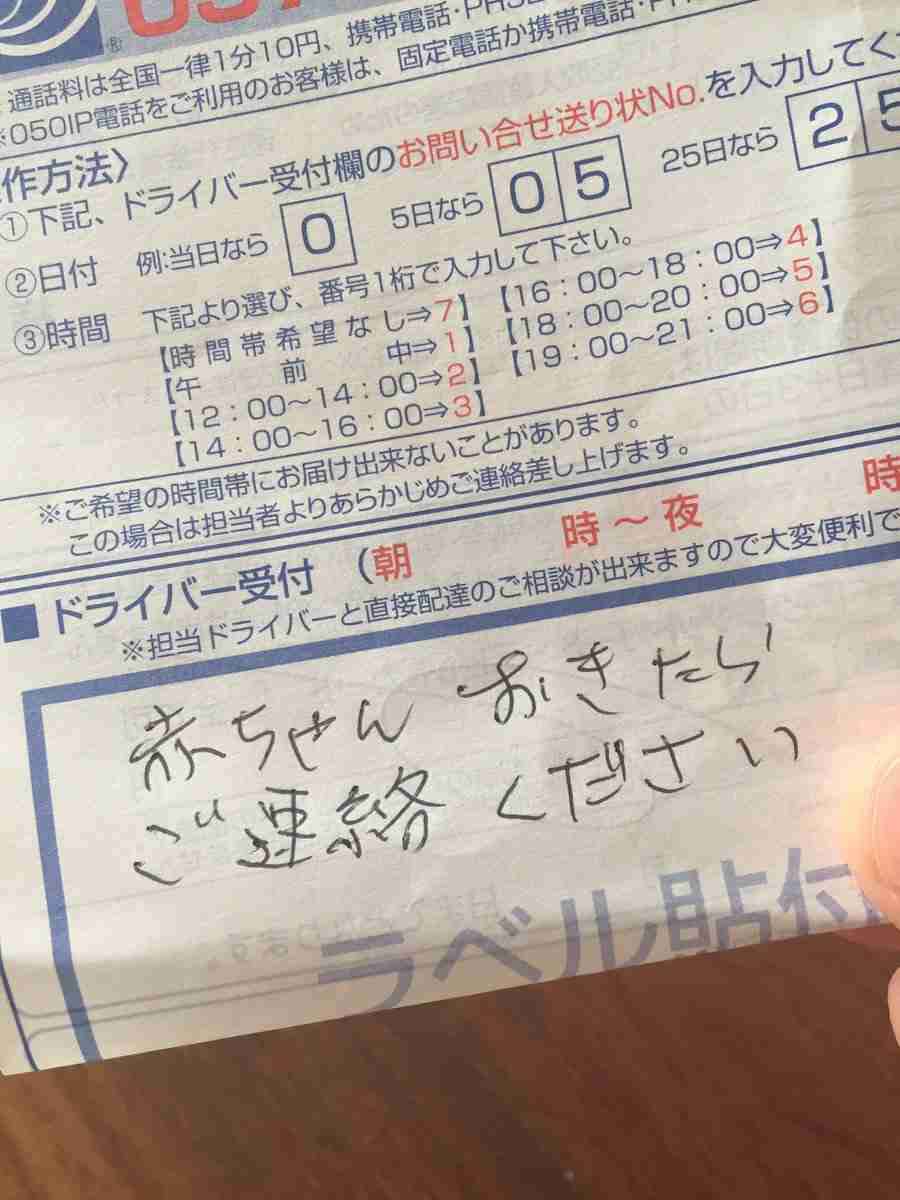 057
通話料は全国一律1分10円、携帯電話・PHS
※050IP電話をご利用のお客様は、固定電話か携帯電話・
作方法〉
①下記、ドライバー受付欄のお問い合せ送り状No.を入力してく
②日付 例:当日なら 0 5日なら 05 25日なら 25
③時間 下記より選び、番号1桁で入力して下さい。
【時間帯希望なし⇒7】【16:00〜18:00⇒4】
【午前中⇒1】【18:00〜20:00⇒5】
【12:00〜14:00⇒2】【19:00〜21:00⇒6】
【14:00〜16:00⇒3】
※ご希望の時間帯にお届け出来ないことがあります。
この場合は担当者よりあらかじめご連絡差し上げます。
■ドライバー受付 (朝 時〜夜 時
※担当ドライバーと直接配達のご相談が出来ますので大変便利で
赤ちゃん おきたら
ご連絡ください
ラベル貼付